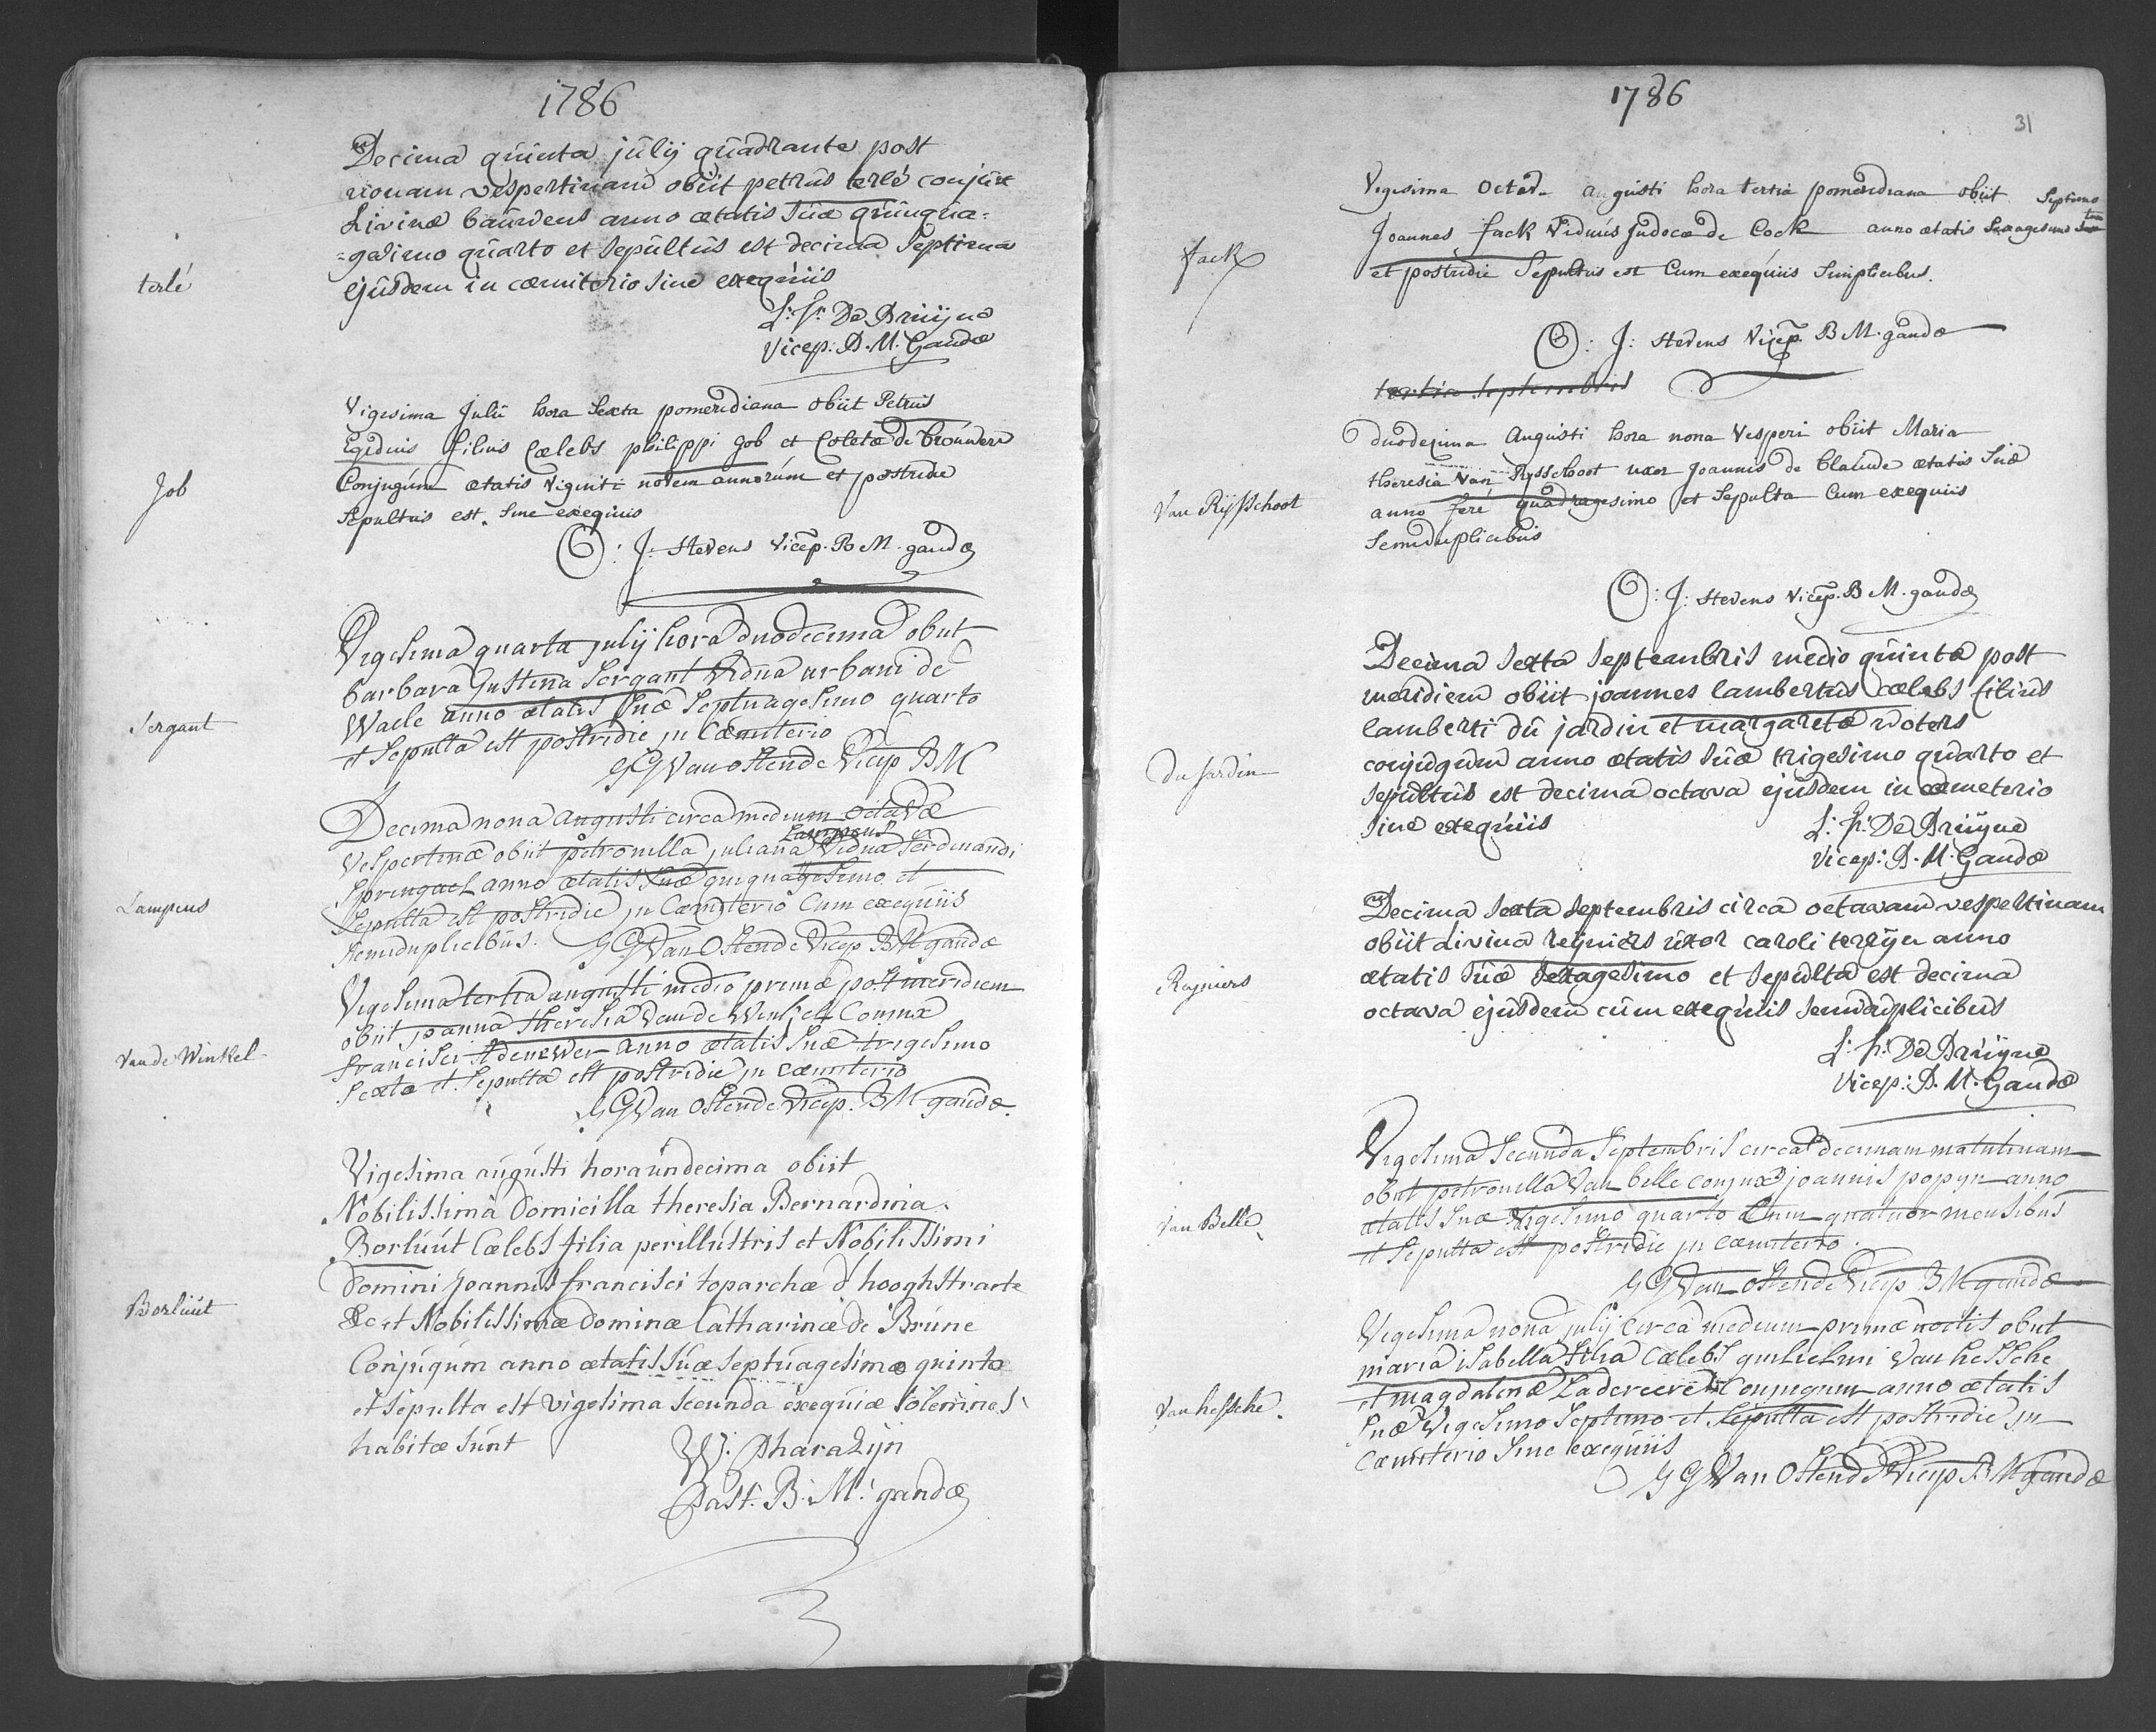 1786
Decima quinta julij quadrante post
nonam vespertinam obiit petrus terlé conjux
Livinæ baûwens anno ætatis suæ quinqua=
=gesimo quarto et sepultus est decima septima
terlé
ejusdem in cœmiterio sine exequiis
L: Fr: De Bruijne
Vicep: B. M. Gandæ
Vigesima Julii hora sexta pomeridiana obiit Petrus
Egidius filius Cælebs philippi Job et Coletæ de brouwere
Job
Conjugum ætatis viginti novem annorum et postridie
Sepultus est. sine exequiis
C: J: Stevens Vicep. B M. gandæ
Vigesima quarta julij hora duodecima obiit
barbara Justina Sergant Vidua urbani de
Sergant
Waele anno ætatis suæ septuagesimo quarto
et sepulta est postridie in Cæmiterio
G G Van Ostende Vicep B M
Decima nona augusti circa medium octavæ
Lampens
Vespertinæ obiit petronilla juliana Vidua ferdinandi
anno ætatis suæ quiquagesimo et
Lampens
Sepulta est postridie in Cæmiterio Cum exequiis
Semiduplicibus. G G Van Ostende Vicep B M gandæ
Vigesima tertia augusti medio primæ post meridiem
obiit joanna theresia Van de Winkel Conjux
Van de Winkel
francisci anno ætatis suæ trigesimo
Sexto et sepulta est postridie in cæmiterio
G G Van Ostende Vicep. B M gandæ.
Vigesima augusti hora undecima obiit
Nobilissima Domicilla theresia Bernardina
Borluut Cælebs filia perillustris et Nobilissimi
Domini Joannis francisci toparchæ d'hooghstraete
Borluut
&c et Nobilissimæ Dominæ Catharinæ de Brune
Conjugum anno ætatis suæ septuagesimæ quinto
et sepulta est vigesima secunda exequiæ solemnes
habitæ sunt
W. Pharazijn
Past. B. M. gandæ
1786
31
Vigesima Octava augusti hora tertia pomeridiana obiit septimo
Fack
Joannes Fack Viduus Judocæ de Cock anno ætatis Sexagesimo
et postridie Sepultus est Cum exequiis Simplicibus.
C: J: Stevens Vicep. B M. gandæ
tertia septembris
duodecima Augusti hora nona Vesperi obiit Maria
theresia Van Rysschoot uxor Joannis de Clande ætatis suæ
Van Rijsschoot
anno feré quadragesimo et Sepulta Cum exequiis
Semiduplicibus
C: J: Stevens Vicep. B M. gandæ
Decima sexta septembris medio quinta post
meridiem obiit joannes lambertus cælebs filius
lamberti du jardin et margaretæ woters
du Jardin
conjugum anno ætatis suæ trigesimo quarto et
sepultus est decima octava ejusdem in cæmeterio
sine exequiis
L: Fr: De Bruijne
Vicep: B. M. Gandæ
Decima sexta septembris circa octavam vespertinam
obiit livina reijniers uxor caroli terrijn anno
Reyniers
ætatis suæ sexagesimo et sepulta est decima
octava ejusdem cum exequiis semiduplicibus
L: Fr: De Bruijne
Vicep: B. M. Gandæ
Vigesima Secunda Septembris circa decimam matutinam
obiit petronilla Van belle conjux joannis popijn anno
Van Belle
ætatis suæ trigesimo quarto Cum quatuor mensibus
et sepulta est postridie in cæmiterio.
G G Van Ostende Vicep B M gandæ
Vigesima nona julij Circa medium primæ noctis obiit
maria isabella filia Cælebs guilielmi Van hessche
et magdalenæ Conjugum anno ætatis
Van hessche.
suæ Vigesimo Septimo et sepulta est postridie in
Cæmiterio Sine exequiis
G G Van Ostende Vicep B M gandæ